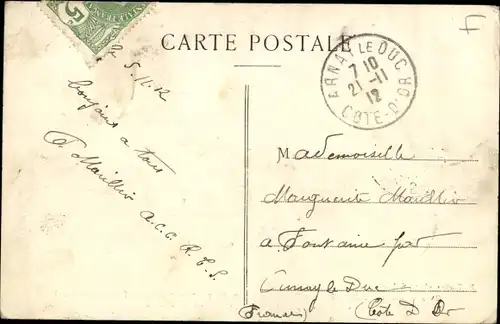 CARTE POSTALE
ARNAY LE DUC
7 10
21-11
12
COTE-D'OR
5.11.12
Bonjour a tous
A Maillir
A.C.C. R.T.S.
Mademoiselle
Marguerite Maillir
a Fontaine par
Arnay le Duc
(France) (Côte D'Or
F